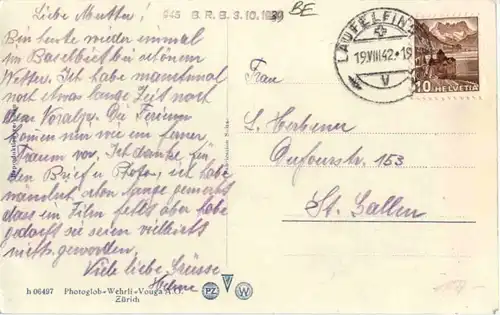 Liebe Mutter!
Bin heute wieder einmal
im Baselbiet bei schönem
Wetter. Ich habe manchmal
noch etwas lange Zeit nach
dem Voralpa. Die Ferien
kommen mir wie ein ferner
Traum vor. Ich danke für
den Brief u. Photos, ich habe
nämlich schon lange gemerkt
dass ein Film fehlt aber habe
gedacht sie seien vielleicht
nichts geworden.
Viele liebe Grüsse
945 B. R. B. 3. 10. 1939
BE
LÄUFELFINGEN
19.VIII.42.-19
V
10 HELVETIA
Frau
Dufourstr. 153
St. Gallen
h 06497 Photoglob-Wehrli-Vouga A.G.
Zürich
PZ V W